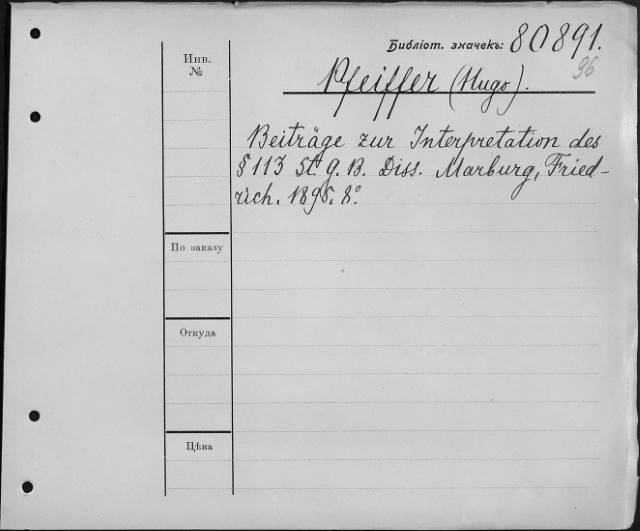 Библіот. значекъ: 80891.
96
Инв.
№
Pfeiffer (Hugo).
Beiträge zur Interpretation des
§ 113 St. G. B. Diss. Marburg, Fried-
rich. 1895. 8°.
По заказу
Откуда
Цѣна